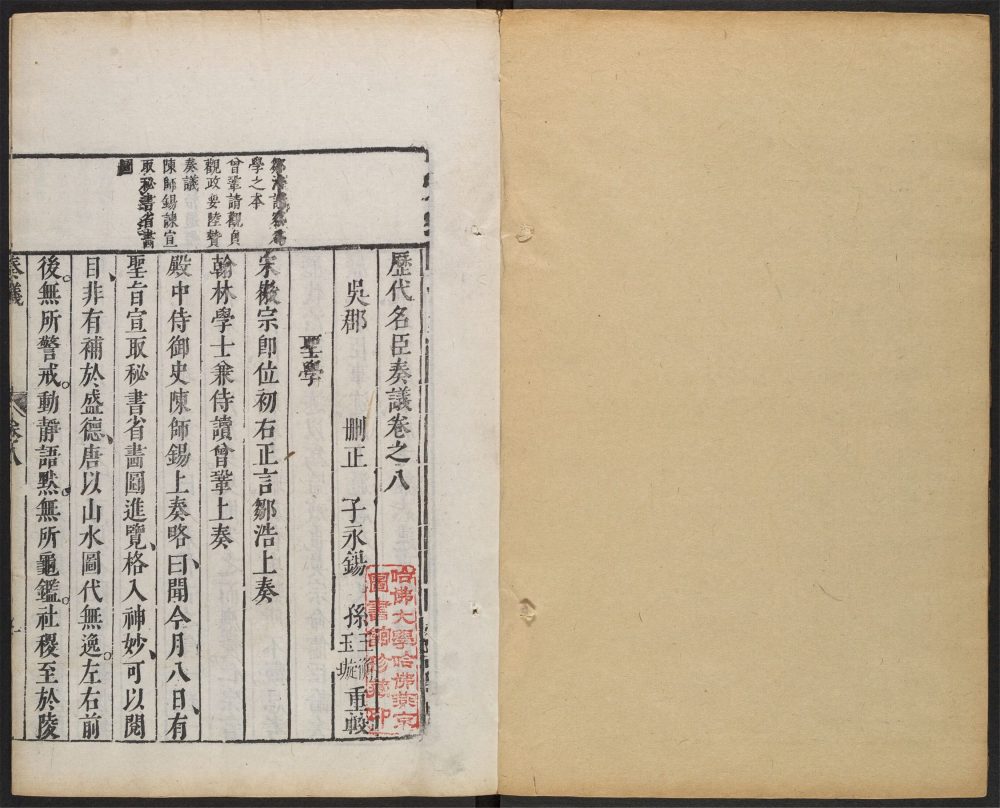 歷代名臣奏議卷之八
吳郡 刪正 子永錫 孫 玉璇 重較
聖學
宋徽宗即位初右正言鄒浩上奏
翰林學士兼侍讀曾鞏上奏
殿中侍御史陳師錫上奏略曰聞今月八日有
聖旨宣取秘書省畵圖進覽格入神妙可以閱
目非有補於盛德唐以山水圖代無逸左右前
後無所警戒動靜語默無所龜鑑社稷至於陵
學之本
曾鞏請觀貞
觀政要陸贄
奏議
陳師錫諫宣
取秘書省畵
圖
奏議 卷八
哈佛大學哈佛燕京
圖書館珍藏印